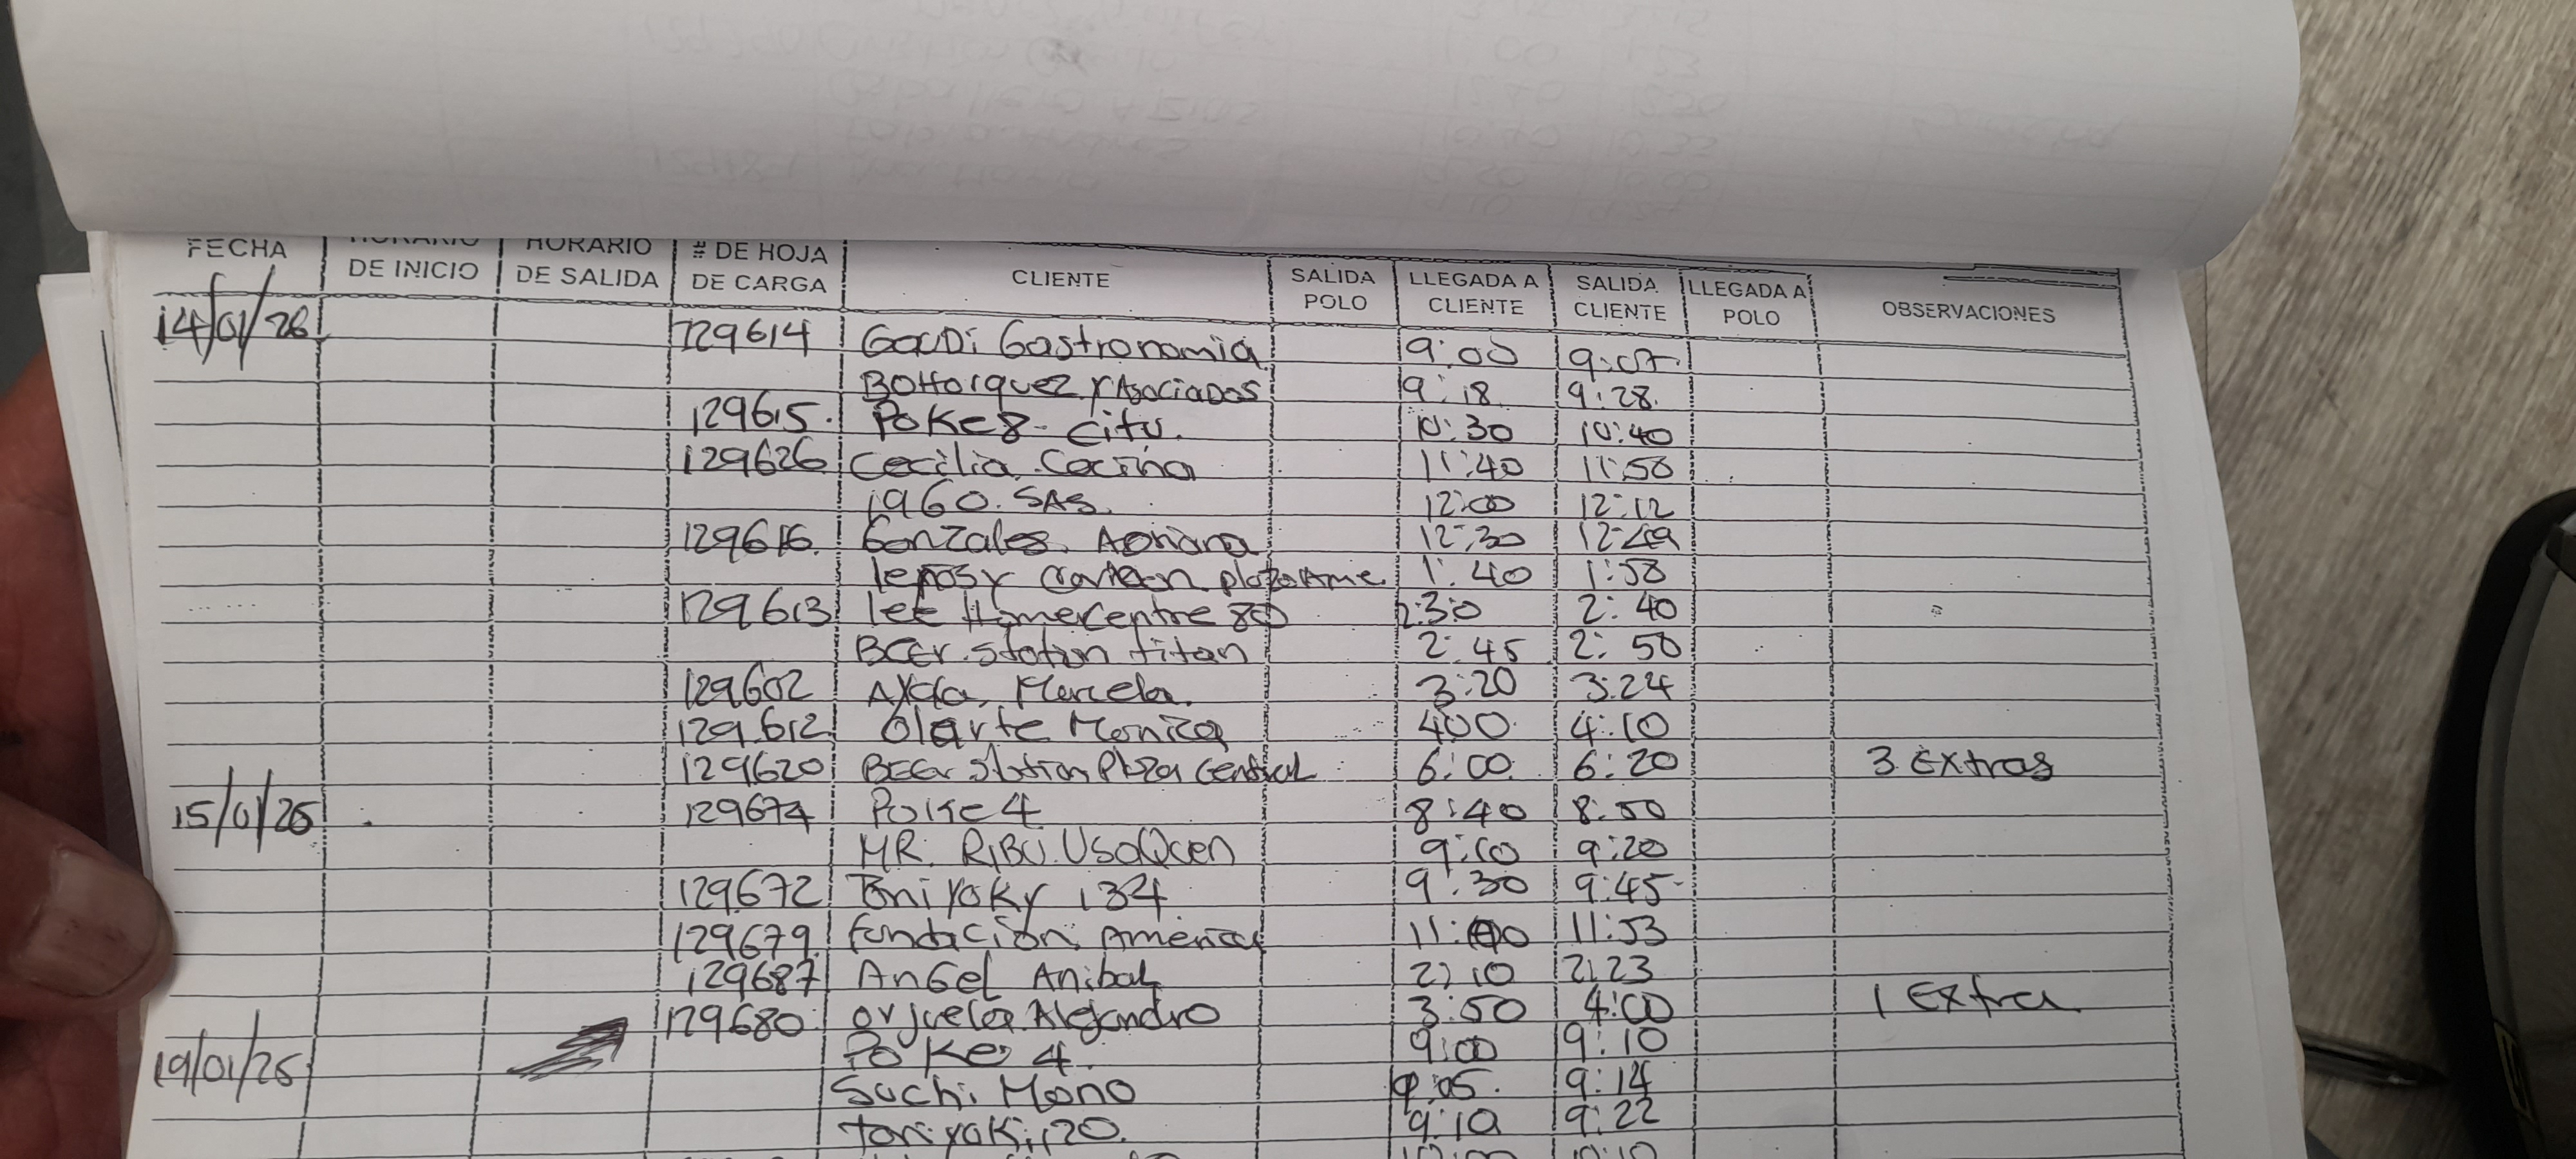 FECHA HORARIO DE INICIO HORARIO DE SALIDA # DE HOJA DE CARGA CLIENTE SALIDA POLO LLEGADA A CLIENTE SALIDA CLIENTE LLEGADA A POLO OBSERVACIONES
14/01/26 129614 Gaudi Gastronomia 9:00 9:07
Bohorquez y Asociados 9:18 9:28
129615 Poke 8- city. 10:30 10:40
129626 Cecilia Cocina 11:40 11:58
1960. SAS. 12:00 12:12
129616 Gonzales Adriana 12:30 12:49
1:40 1:58
129613 lee Homecentre 80 2:30 2:40
BEEr station titan 2:45 2:50
129602 Marcela. 3:20 3:24
129612 Olarte Monica 400 4:10
129620 BEEr station Plaza Central 6:00 6:20 3 Extras
15/01/26 129674 Poke 4 8:40 8:50
MR. RIBU. UsaQuen 9:10 9:20
129672 134 9:30 9:45
129679 fundacion America 11:00 11:53
129687 AnGel Anibal 2:10 2:23
129680 orjuela Alejandro 3:50 4:00 1 Extra
19/01/26 Poke 4. 9:00 9:10
Suchi Mono 9:05 9:14
toriyaki 120. 9:10 9:22